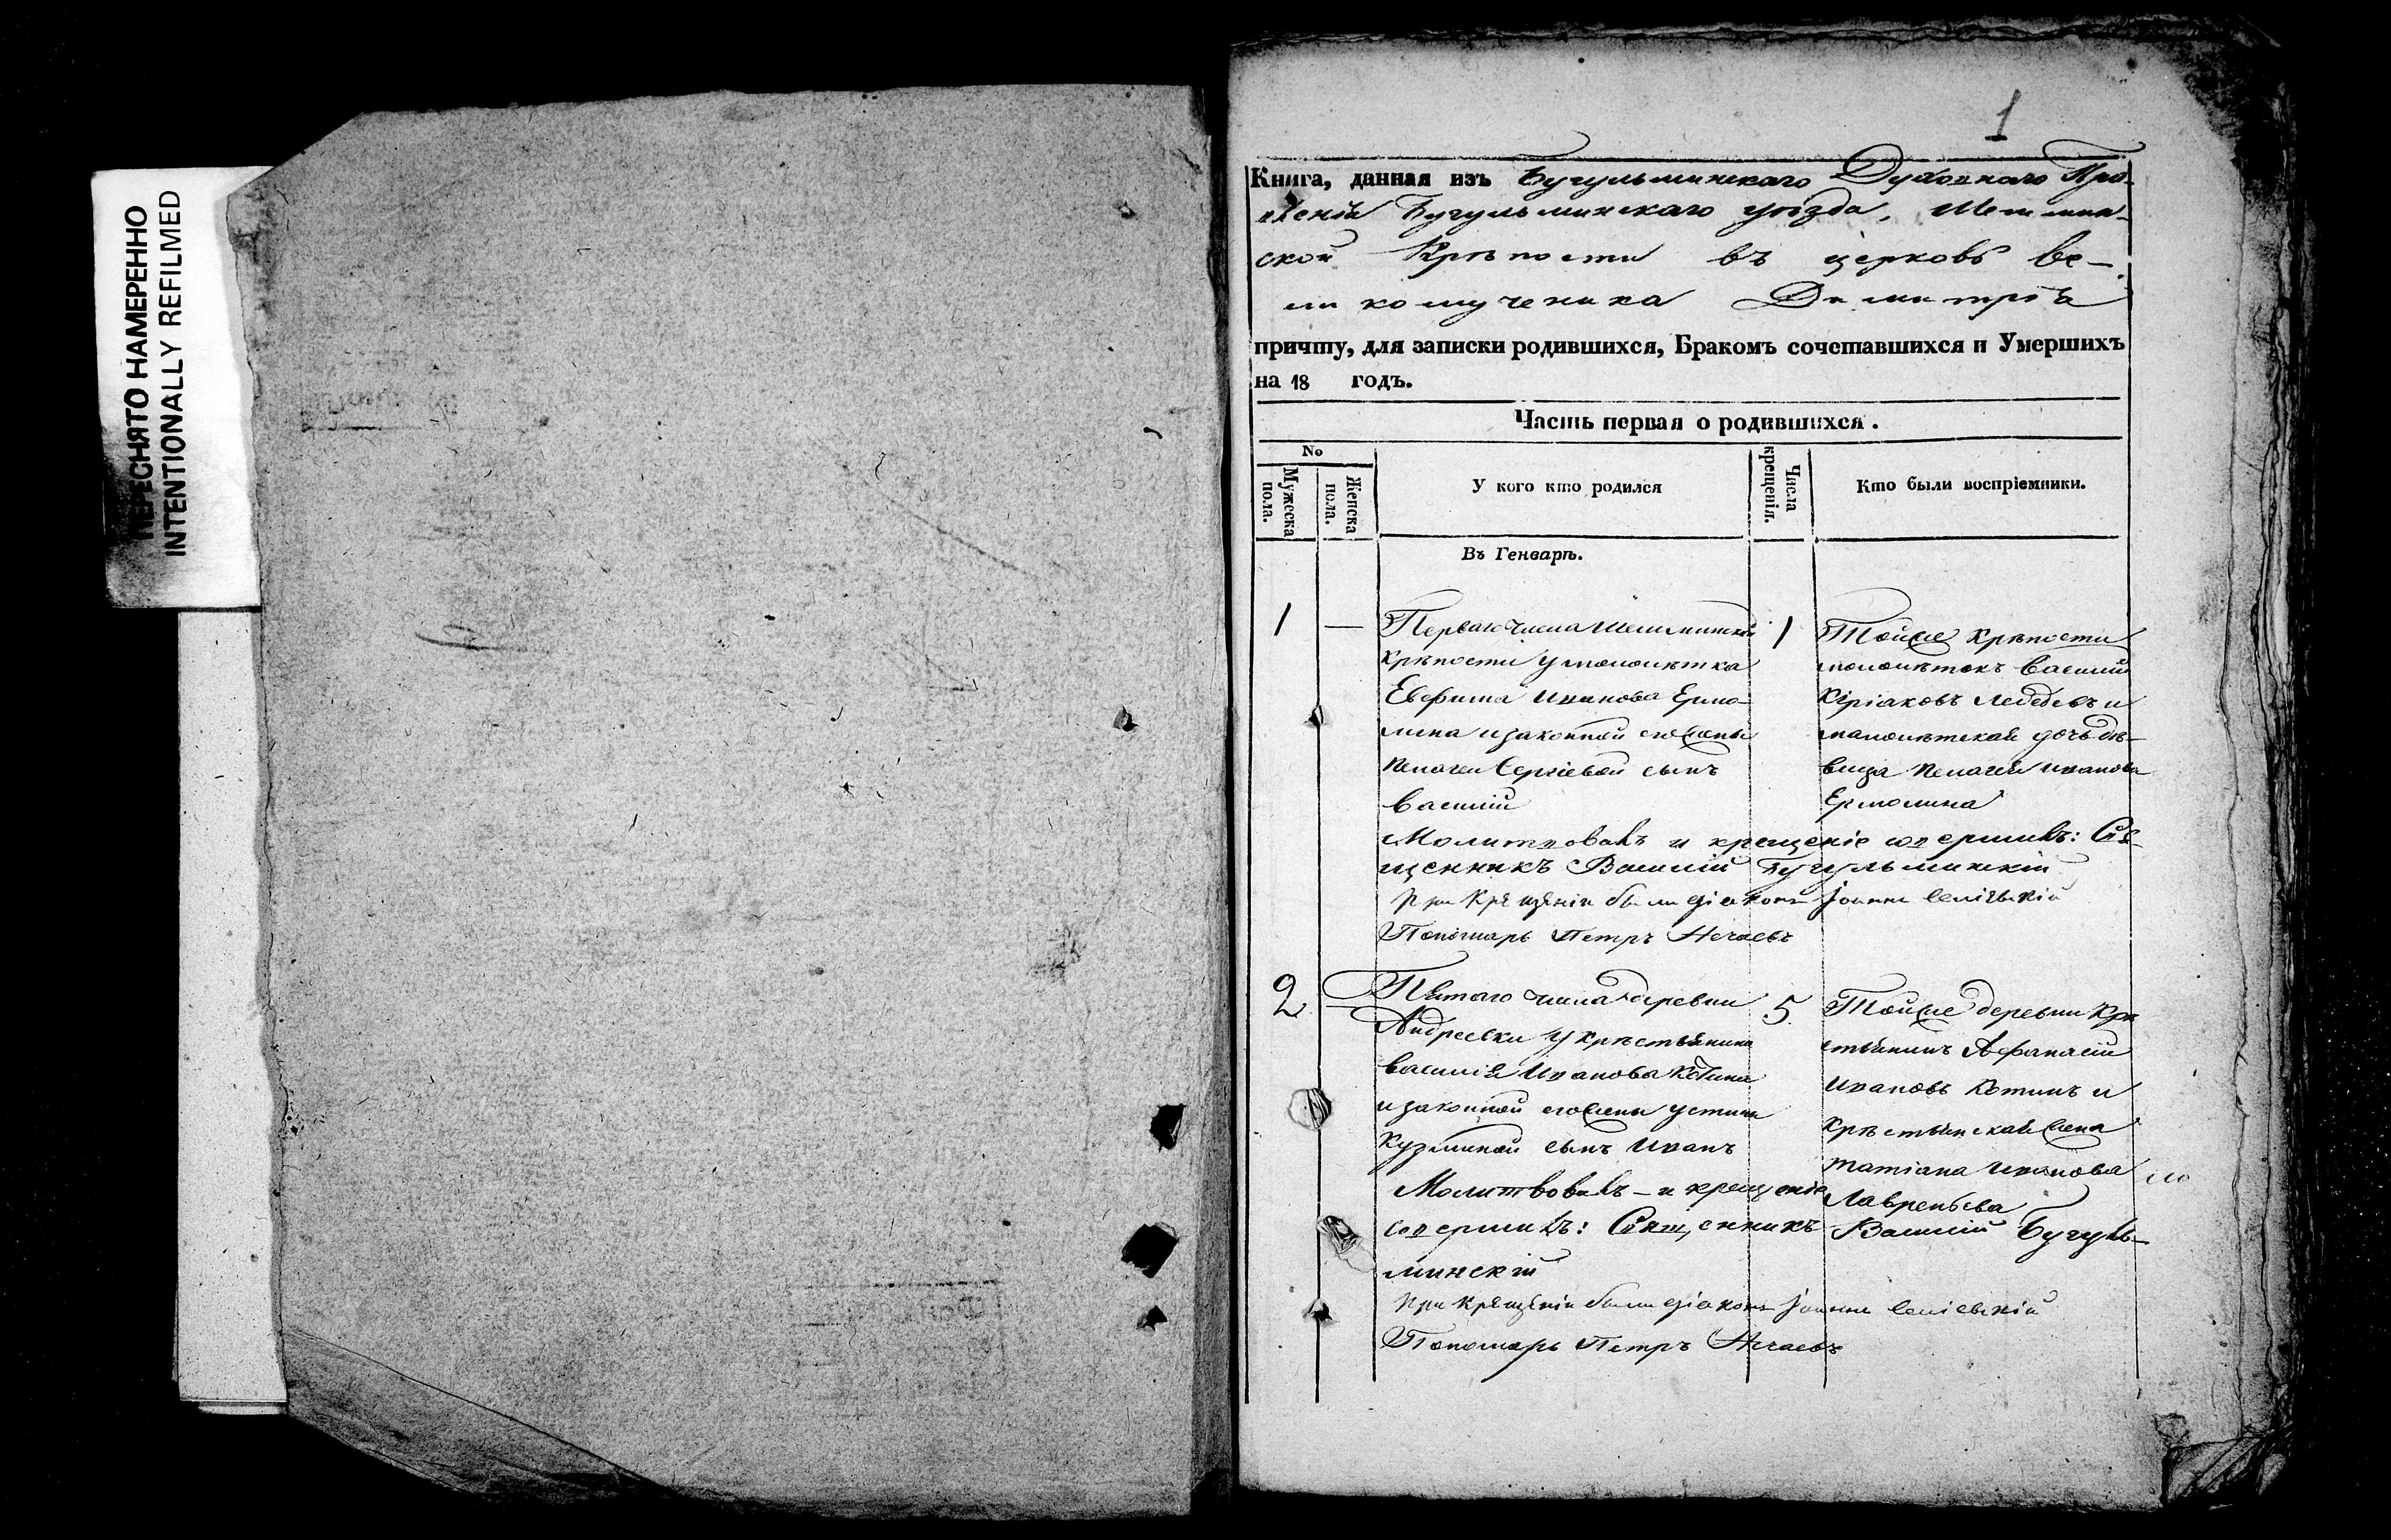 ПЕРЕСНЯТО НАМЕРЕННО
INTENTIONALLY REFILMED
1
Книга, данная изъ Бугульминскаго Духовнаго Пра-
вленія Бугульминскаго уѣзда, Шешмин-
ской Крѣпости въ церковь Ве-
ликомученика Димитрія
причту, для записки родившихся, Бракомъ сочетавшихся и Умершихъ
на 18 годъ.
Часть первая о родившихся.
No
Мужеска пола.
Женска пола.
У кого кто родился
Числа крещенія.
Кто были воспріемники.
Въ Генварѣ.
1 —
Перваго числа Шешминской
крѣпости у малолѣтка
Евфима Иванова Ермо-
лина и законной его жены
Пелагеи Сергіевой сынъ
Василій
1
Тойже крѣпости
малолѣтокъ Василій
Киріаковъ Лебедевъ и
малолѣтская дочь дѣ-
вица Пелагея Иванова
Ермолина
Молитвовалъ и крещеніе совершилъ: Свя-
щенникъ Василій Бугульминскій
При Крещеніи были діаконъ Іоаннъ
Пономарь Петръ Нечаевъ
2 —
Пятаго числа деревни
Андреевки у крѣстьянина
Василія Иванова Котина
и законной его жены Устиньи
Кузминой сынъ Иванъ
5
Тойже деревни Крѣ
стьянинъ Афанасій
Ивановъ Котинъ и
крѣстьянская жена
Татіана Иванова
Лаврентьева
Молитвовалъ — и крещеніе
совершилъ: Священникъ Василій Бугуль-
минскій
При Крещеніи были діаконъ Іоаннъ
Пономарь Петръ Нечаевъ